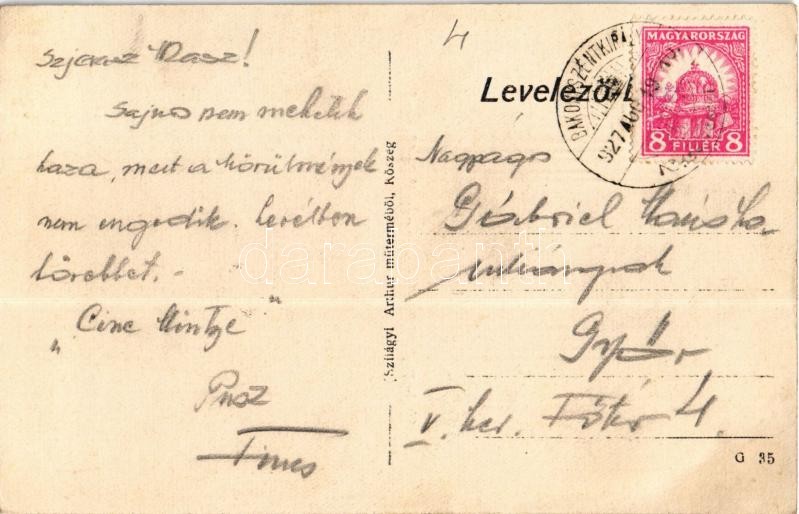 4
Szervusz !
Sajnos nem mehetek
haza, mert a körülmények
nem engedik. Levélben
többet. -
"Cine Mintye"
Pusz
Tinus
Szilágyi Arthur műterméből, Kőszeg
Levelező-L
BAKONYSZENTKIRÁLY
927 AUG
MAGYARORSZÁG
8 FILLÉR 8
Nagyságos
Gábriel Mariska
Győr
V. ker. Főtér 4.
G 35
darabanth